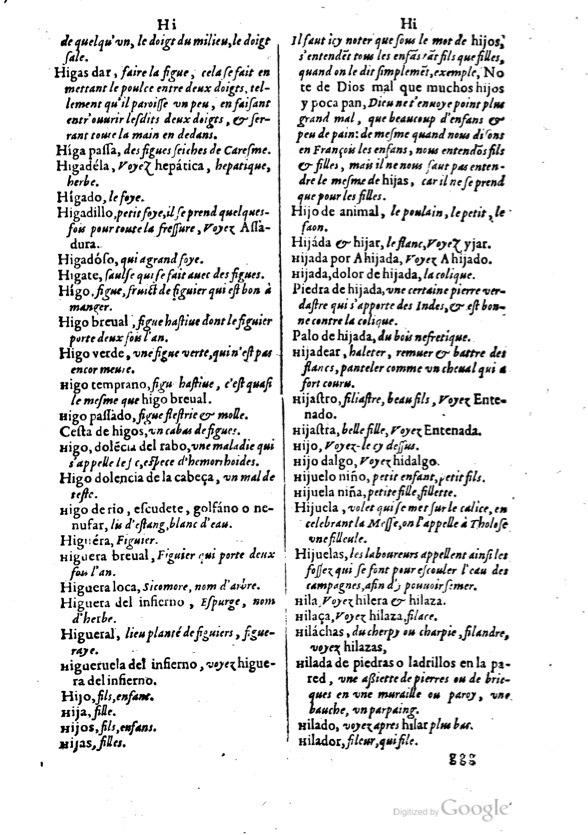 Hi
de quelqu'vn, le doigt du milieu, le doigt
sale.
Higas dar, faire la figue, cela se fait en
mettant le poulce entre deux doigts, tel-
lement qu'il paroisse vn peu, en faisant
entr'ouurir lesdits deux doigts, & ser-
rant toute la main en dedans.
Higa passa, des figues seiches de Caresme.
Higadéla, Voyez hepática, hepatique,
herbe.
Hígado, le foye.
Higadillo, petit foye, il se prend quelques-
fois pour toute la fressure, Voyez Assa-
dura.
Higadóso, qui a grand foye.
Higate, saulse qui se fait auec des figues.
Hígo, figue, fruict de figuier qui est bon à
manger.
Higo breual, figue hastiue dont le figuier
porte deux fois l'an.
Higo verde, vne figue verte, qui n'est pas
encor meure.
Higo temprano, figue hastiue, c'est quasi
le mesme que higo breual.
Higo passado, figue flestrie & molle.
Cesta de higos, vn cabas de figues.
Higo, dolēcia del rabo, vne maladie qui
s'appelle le fic, espece d'hemorrhoides.
Higo dolencia de la cabeça, vn mal de
teste.
Higo de rio, escudete, golfáno o ne-
nufar, lis d'estang, blanc d'eau.
Higuéra, Figuier.
Higuera breual, Figuier qui porte deux
fois l'an.
Higuera loca, Sicomore, nom d'arbre.
Higuera del infierno, Espurge, nom
d'herbe.
Higueral, lieu planté de figuiers, figue-
raye.
Higueruela del infierno, voyez higue-
ra del infierno.
Hijo, fils, enfant.
Hija, fille.
Hijos, fils, enfans.
Hijas, filles.
Hi
Il faut icy noter que sous le mot de hijos,
s'entendēt tous les enfās tāt fils que filles,
quand on le dit simplemēt, exemple, No
te de Dios mal que muchos hijos
y poca pan, Dieu ne t'enuoye point plus
grand mal, que beaucoup d'enfans &
peu de pain: de mesme quand nous disons
en François les enfans, nous entendōs fils
& filles, mais il ne faut pas enten-
dre le mesme de hijas, car il ne se prend
que pour les filles.
Hijo de animal, le poulain, le petit, le
faon.
Hijáda & hijar, le flanc, Voyez yjar.
Hijada por Ahijada, Voyez Ahijado.
Hijada, dolor de hijada, la colique.
Piedra de hijada, vne certaine pierre ver-
dastre qui s'apporte des Indes, & est bon-
ne contre la colique.
Palo de hijada, du bois nefretique.
Hijadear, haleter, remuer & battre des
flancs, panteler comme vn cheual qui a
fort couru.
Hijastro, filiastre, beau fils, Voyez Ente-
nado.
Hijastra, belle fille, Voyez Entenada.
Hijo, Voyez-le cy dessus.
Hijo dalgo, Voyez hidalgo.
Hijuelo niño, petit enfant, petit fils.
Hijuela niña, petite fille, fillette.
Hijuela, volet qui se met sur le calice, en
celebrant la Messe, on l'appelle à Tholose
vne filleule.
Hijuelas, les laboureurs appellent ainsi les
fossez qui se font pour escouler l'eau des
campagnes, afin d'y pouuoir semer.
Hila, Voyez hilera & hilaza.
Hilaça, Voyez hilaza, filace.
Hiláchas, du cherpy ou charpie, filandre,
voyez hilazas,
Hilada de piedras o ladrillos en la pa-
red, vne assiette de pierres ou de bric-
ques en vne muraille ou paroy, vne
bauche, vn parpaing.
Hilado, voyez apres hilar plus bas.
Hilador, fileur, qui file.
ggg
Digitized by Google